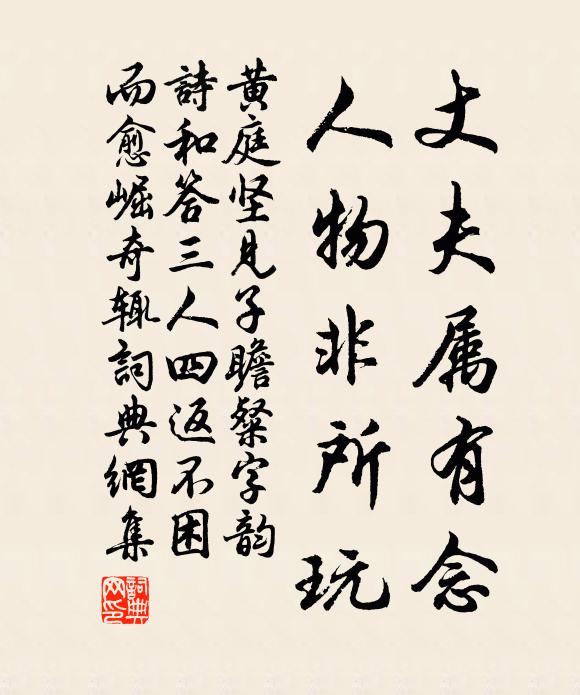 丈夫属有念
人物非所玩
黄庭坚見子瞻粲字韵
詩和答三人四返不困
而愈崛奇辄詞典網集
詞典网印